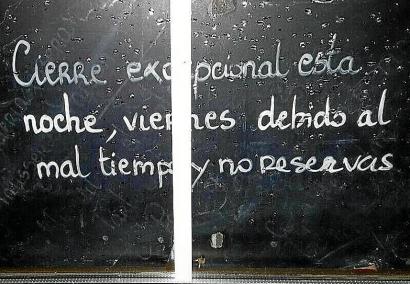 Cierre excepcional esta
noche, viernes debido al
mal tiempo y no reservas